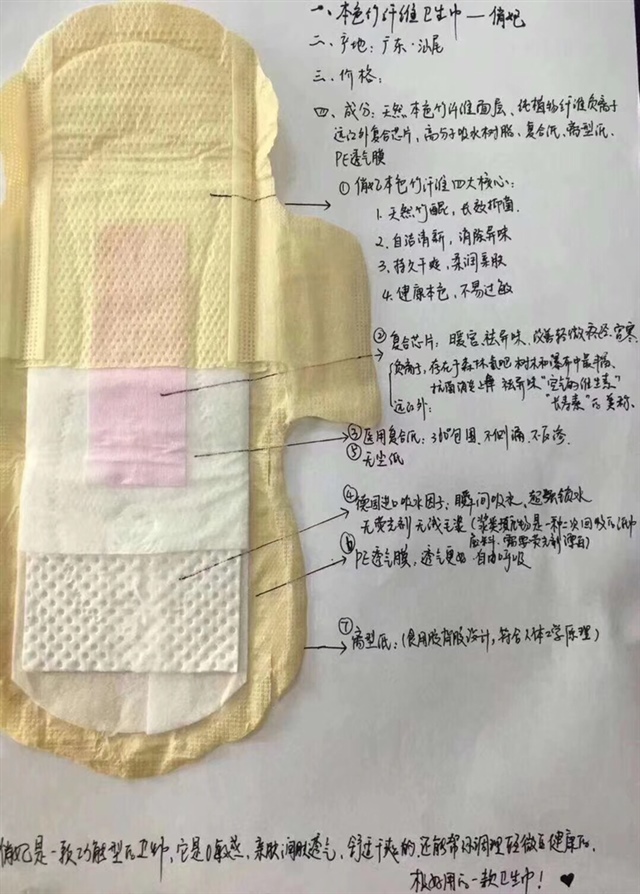 一、本色竹纤维卫生巾—俏妃
二、产地：广东·汕尾
三、价格：
四、成分：天然本色竹纤维面层、纯植物纤维负离子
远红外复合芯片，高分子吸水树脂、复合纸、离型纸、
PE透气膜
①俏妃本色竹纤维四大核心：
1.天然竹醌，长效抑菌
2.自洁清新，消除异味
3.持久干爽，柔润亲肤
4.健康本色，不易过敏
②复合芯片：暖宫、祛异味、改善轻微痛经、宫寒
负离子，存在于森林氧吧 树木和瀑布中最丰
抗菌消炎 祛异味"空气的维生素"
远红外： "长寿素"的美称、
③医用复合纸：360°包围、不侧漏、不反渗、
⑤无尘纸
④德国进口吸水因子，瞬间吸水、超强锁水
无荧光剂 无浅毛浆（浆类填充物是一种二次回收的纸巾
原料、需要荧光剂漂白）
⑥PE透气膜，透气更好、自由呼吸
⑦离型纸：（食用胶背胶设计，符合人体工学原理）
俏妃是一款功能型的卫生巾，它是0敏感、亲肤润肤透气、舒适干爽的、还能帮你调理轻微亚健康的、
极好用的一款卫生巾！♥